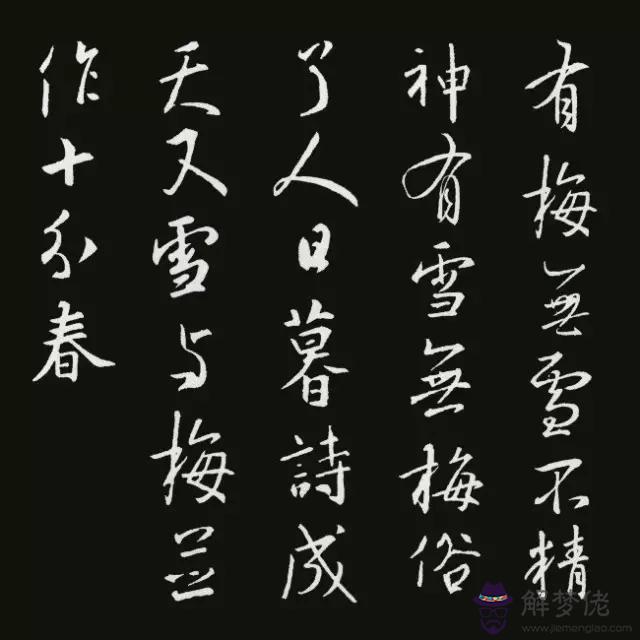 有梅無雪不精
神有雪無梅俗
了人日暮詩成
天又雪与梅並
作十分春
解梦佬
www.jiemenglao.com